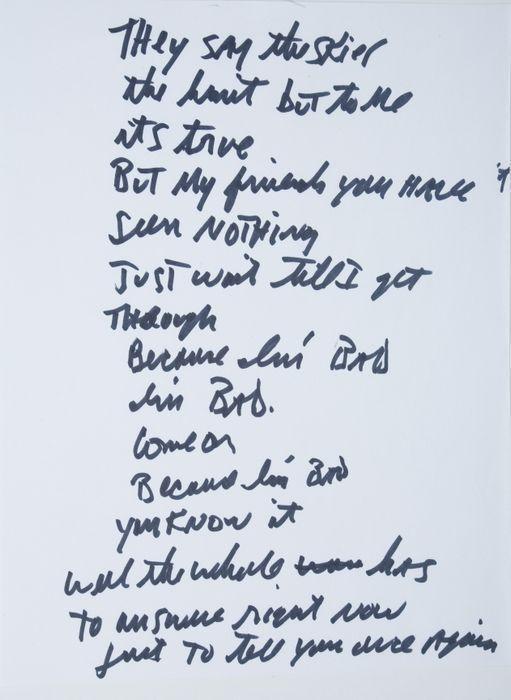 They say the skies
the limit but to me
its true
But my friends you have 't
seen NOTHING
JUST wait till I get
Through
Because Im BAD
Im BAD.
Come on
Because Im BAD
you KNOW it
well the whole has
To answer right now
just To tell you once Again